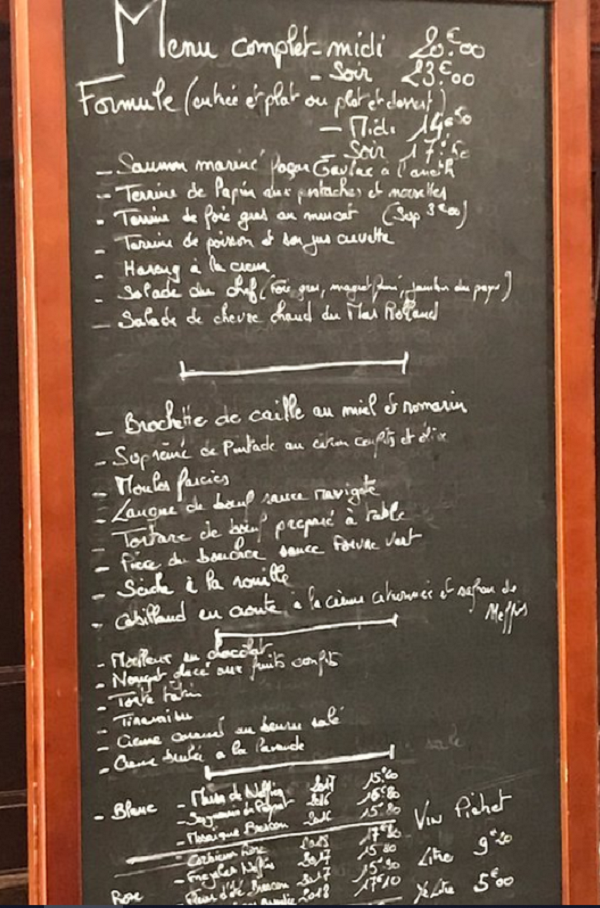 Menu complet midi 20€00
- Soir 23€00
Formule (entrée et plat ou plat et dessert)
- Midi 14€50
- Soir 17€50
- Saumon mariné façon Gavlax à l'aneth
- Terrine de lapin aux pistaches et noisettes
- Terrine de foie gras au muscat (Sup 3€00)
- Terrine de poisson et son jus crevette
- Hareng à la crème
- Salade du chef (Foie gras, magret fumé, jambon du pays)
- Salade de chèvre chaud du Mas Rolland
- Brochette de caille au miel et romarin
- Suprême de Pintade au citron confits et
- Moules farcies
- Langue de bœuf sauce ravigote
- Tartare de bœuf préparé à table
- Pièce du boucher sauce Poivre vert
- Seiche à la rouille
- Cabillaud en croute, à la crème citronnée et safran de
Neffiès
- Moelleux au chocolat
- Nougat glacé aux fruits confits
- Tarte tatin
- Tiramisu
- Crème caramel au beurre salé
- Crème brulée a la Lavande
- Blanc - de Neffiès 2017 15.60
- 2016 16.80
- Mosaïque Bressan 2016 15.80
Vin Pichet
- 2018
Litre 9€20
- Neffiès 2017 15.80
Rosé - d'été Bressan 2017 15.50
½ Litre 5€00
2018 17.10